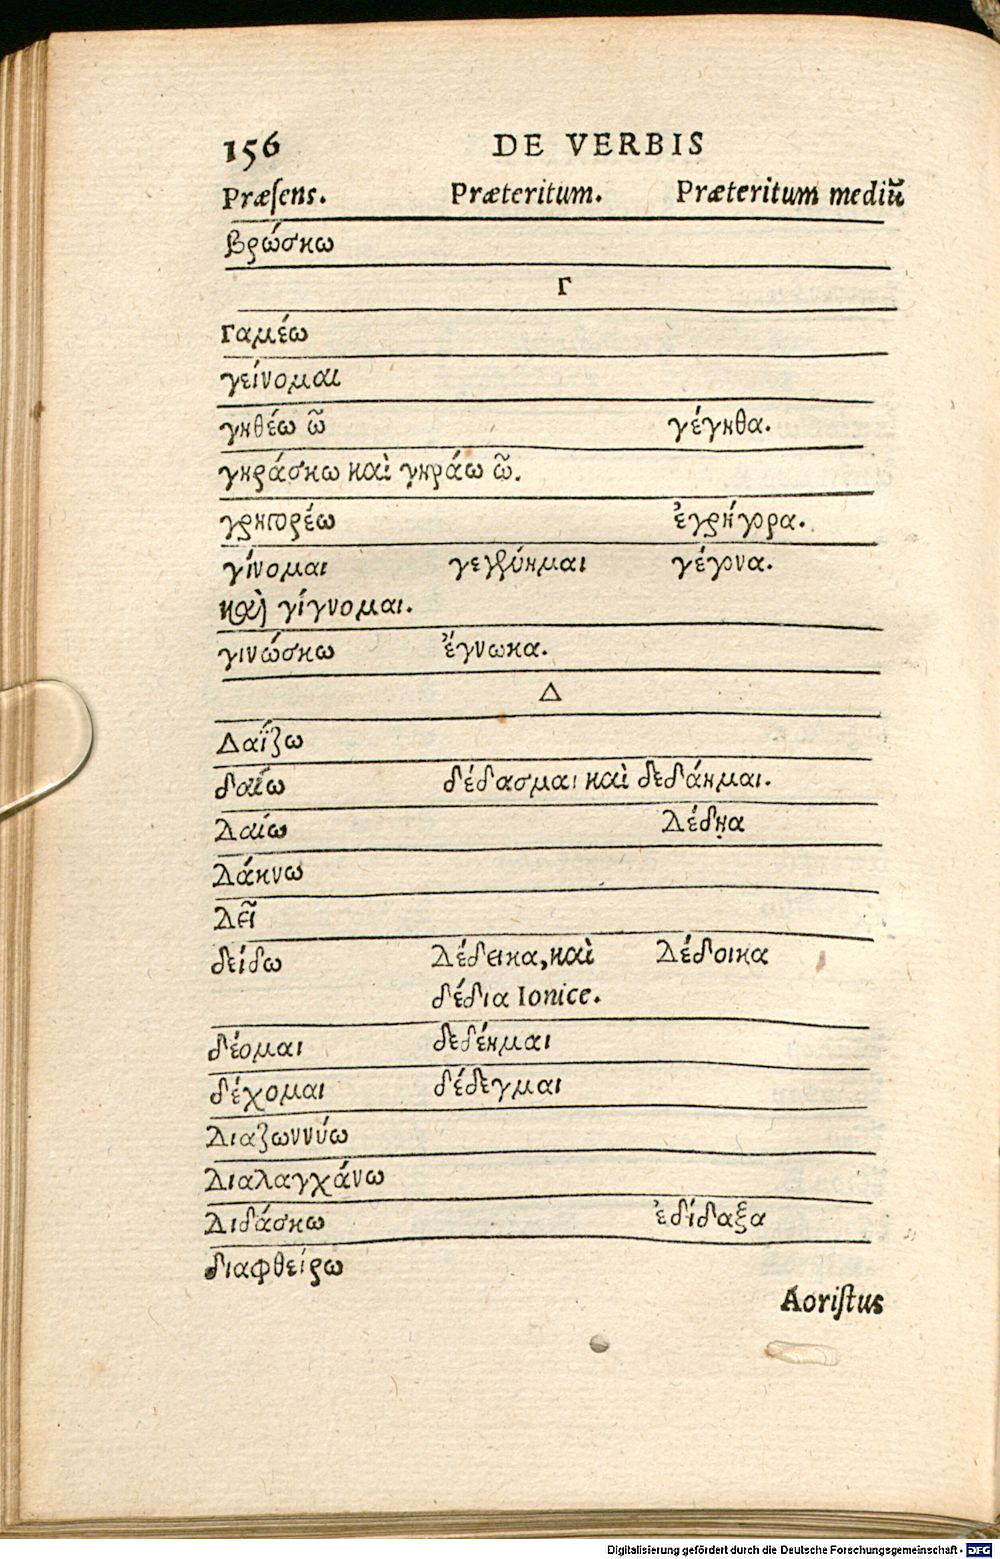 156 DE VERBIS
Præſens. Præteritum. Præteritum mediũ
βρώσκω
Γ
Γαμέω
γείνομαι
γηθέω ῶ γέγηθα.
γηράσκω καὶ γηράω ῶ.
γρηγορέω ἐγρήγορα.
γίνομαι γεγένημαι γέγονα.
καὶ γίγνομαι.
γινώσκω ἔγνωκα.
Δ
Δαΐζω
δαίω δέδασμαι καὶ δεδάημαι.
Δαίω Δέδηα
Δάκνω
Δεῖ
δείδω Δέδεικα, καὶ Δέδοικα
δέδια Ionice.
δέομαι δεδέημαι
δέχομαι δέδεγμαι
Διαζωννύω
Διαλαγχάνω
Διδάσκω ἐδίδαξα
διαφθείρω
Aoriſtus
Digitalisierung gefördert durch die Deutsche Forschungsgemeinschaft - DFG